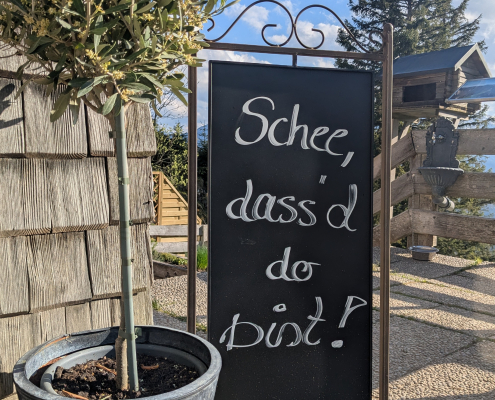 Schee,
dass "d
do
bist!